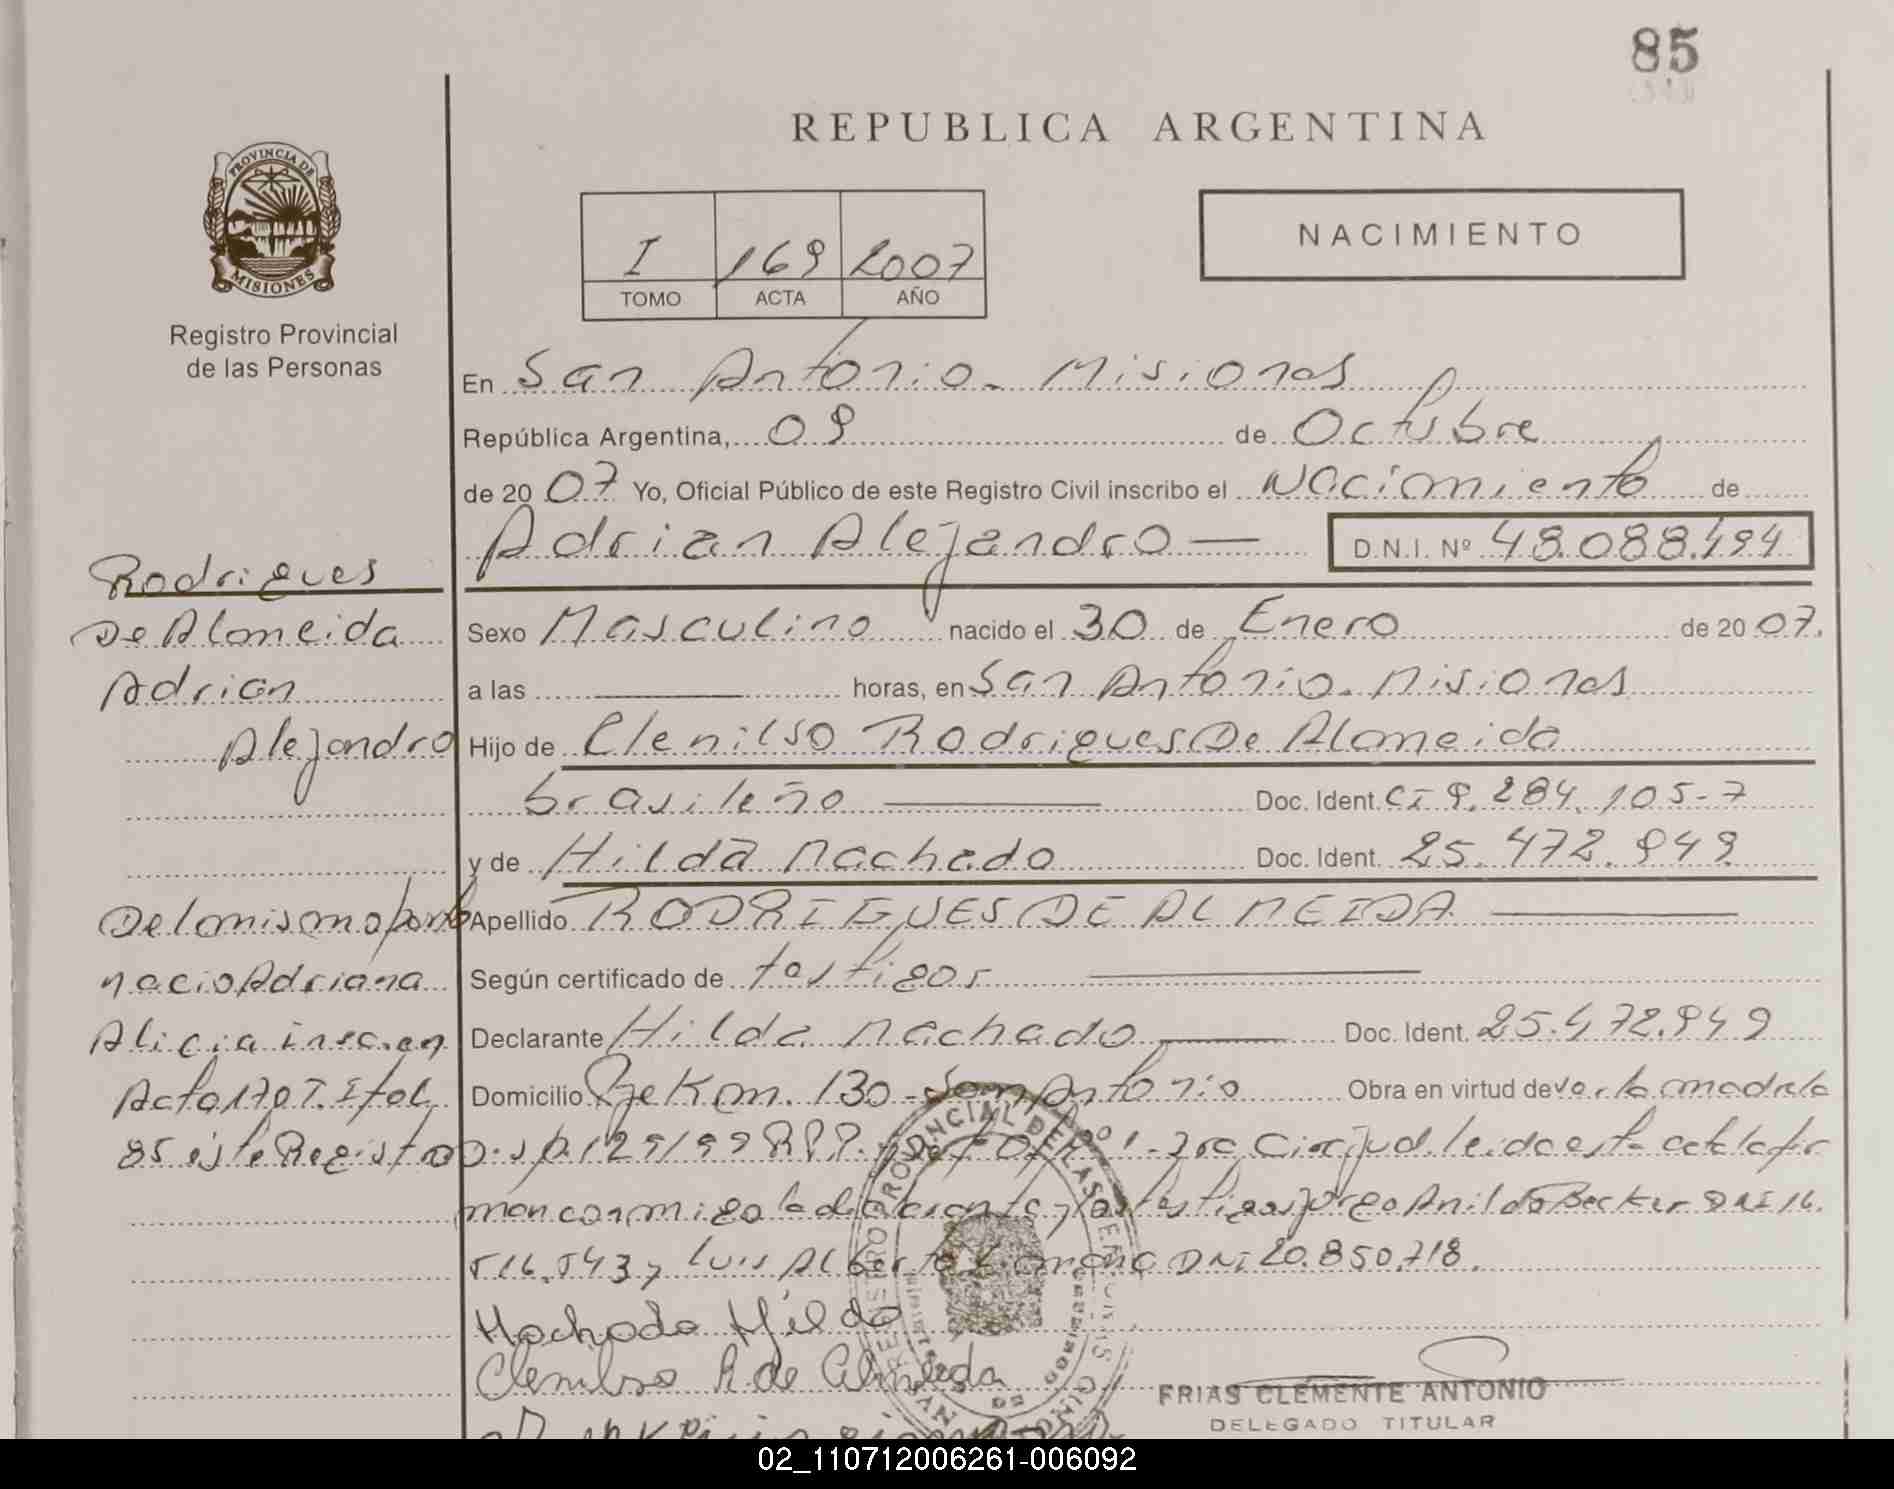 85
REPUBLICA ARGENTINA
PROVINCIA DE
MISIONES
Registro Provincial
de las Personas
I 169 2007
TOMO ACTA AÑO
NACIMIENTO
En San Antonio - Misiones
República Argentina, 09 de Octubre
de 2007 Yo, Oficial Público de este Registro Civil inscribo el Nacimiento de
Adrian Alejandro — D.N.I. Nº 48.088.494
Rodrigues
De Almeida
Adrian
Alejandro
Sexo Masculino nacido el 30 de Enero de 2007.
a las — horas, en San Antonio - Misiones
Hijo de Clenilso Rodrigues De Almeida
brasileño — Doc. Ident. CI 9.284.105-7
y de Hilda Machado Doc. Ident. 25.472.949
Apellido RODRIGUES DE ALMEIDA —
Según certificado de testigos —
Declarante Hilda Machado — Doc. Ident. 25.472.949
Domicilio Pje Km. 130 - San Antonio Obra en virtud de ser la madre la
Del mismo parto
nacio Adriana
Alicia insc. en
Acta 170 T. I fol
85 este Registro
D.sp. 129/99 RPP. 1ra Circ jud. leida esta acta la fir
man conmigo la declarante y los testigos Jorge Anildo Becker DNI 16.
516.543 y Luis Alberto DNI 20.850.718.
Machado Hilda
Clenilso R de Almeida
FRIAS CLEMENTE ANTONIO
DELEGADO TITULAR
02_110712006261-006092